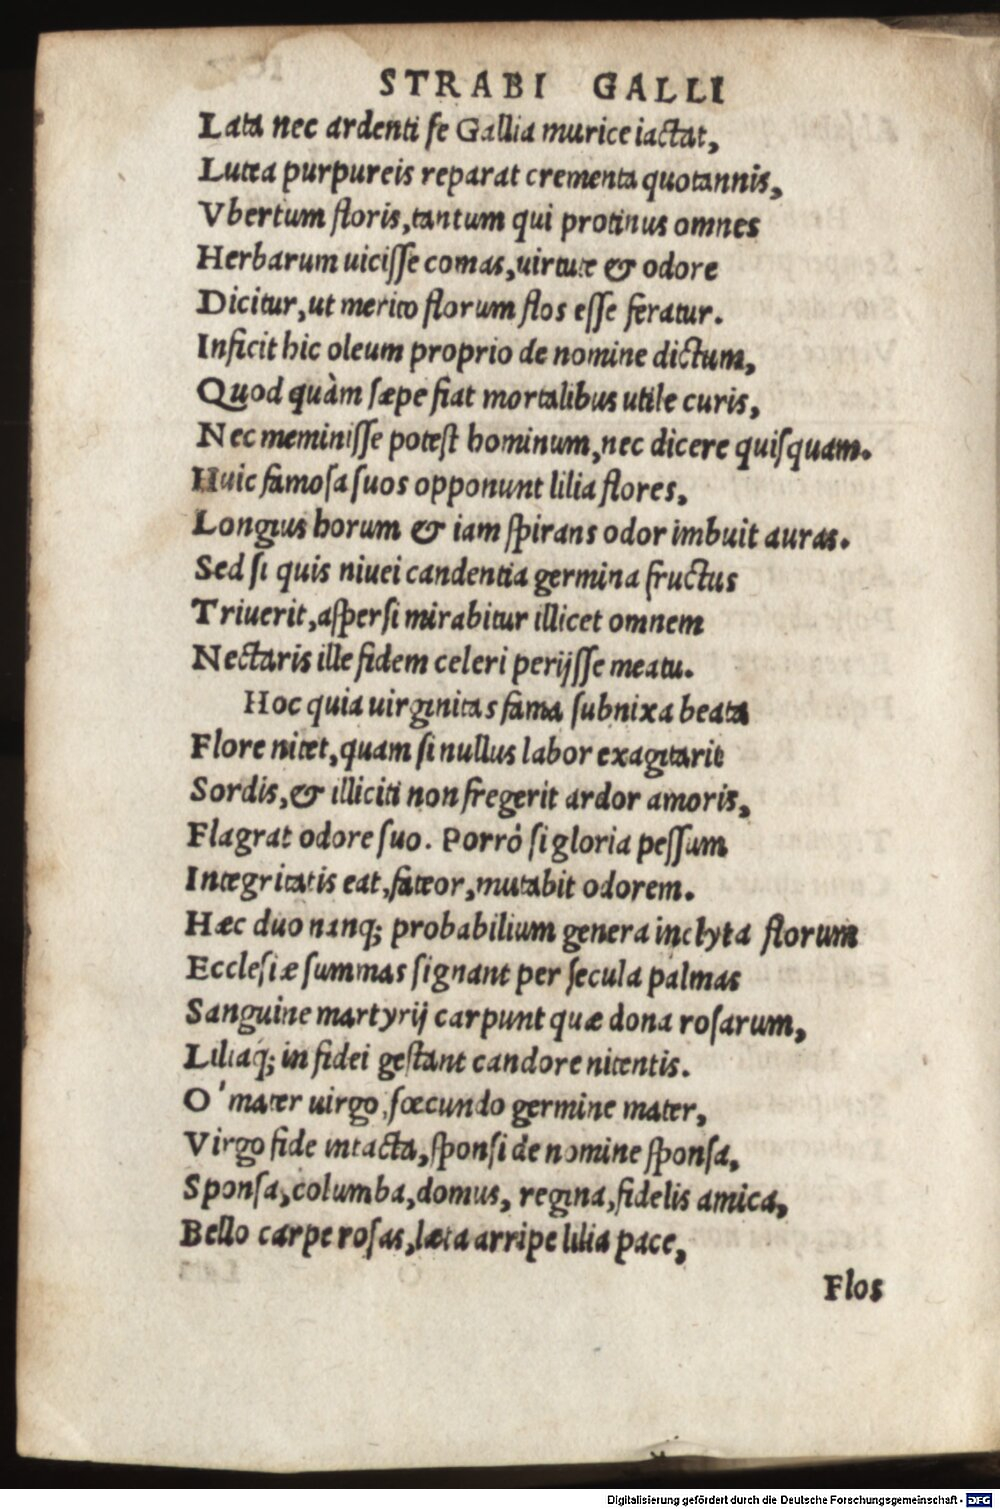 STRABI GALLI
Lata nec ardenti se Gallia murice iactat,
Lutea purpureis reparat crementa quotannis,
Vbertum floris, tantum qui protinus omnes
Herbarum uicisse comas, uirtute & odore
Dicitur, ut merito florum flos esse feratur.
Inficit hic oleum proprio de nomine dictum,
Quod quàm sæpe fiat mortalibus utile curis,
Nec meminisse potest hominum, nec dicere quisquam.
Huic famosa suos opponunt lilia flores,
Longius horum & iam spirans odor imbuit auras.
Sed si quis niuei candentia germina fructus
Triuerit, aspersi mirabitur illicet omnem
Nectaris ille fidem celeri perijsse meatu.
Hoc quia uirginitas fama subnixa beata
Flore nitet, quam si nullus labor exagitarit
Sordis, & illiciti non fregerit ardor amoris,
Flagrat odore suo. Porrò si gloria pessum
Integritatis eat, fateor, mutabit odorem.
Hæc duo nanq; probabilium genera inclyta florum
Ecclesiæ summas signant per secula palmas
Sanguine martyrij carpunt quæ dona rosarum,
Liliaq; in fidei gestant candore nitentis.
O' mater uirgo, fœcundo germine mater,
Virgo fide intacta, sponsi de nomine sponsa,
Sponsa, columba, domus, regina, fidelis amica,
Bello carpe rosas, læta arripe lilia pace,
Flos
Digitalisierung gefördert durch die Deutsche Forschungsgemeinschaft - DFG